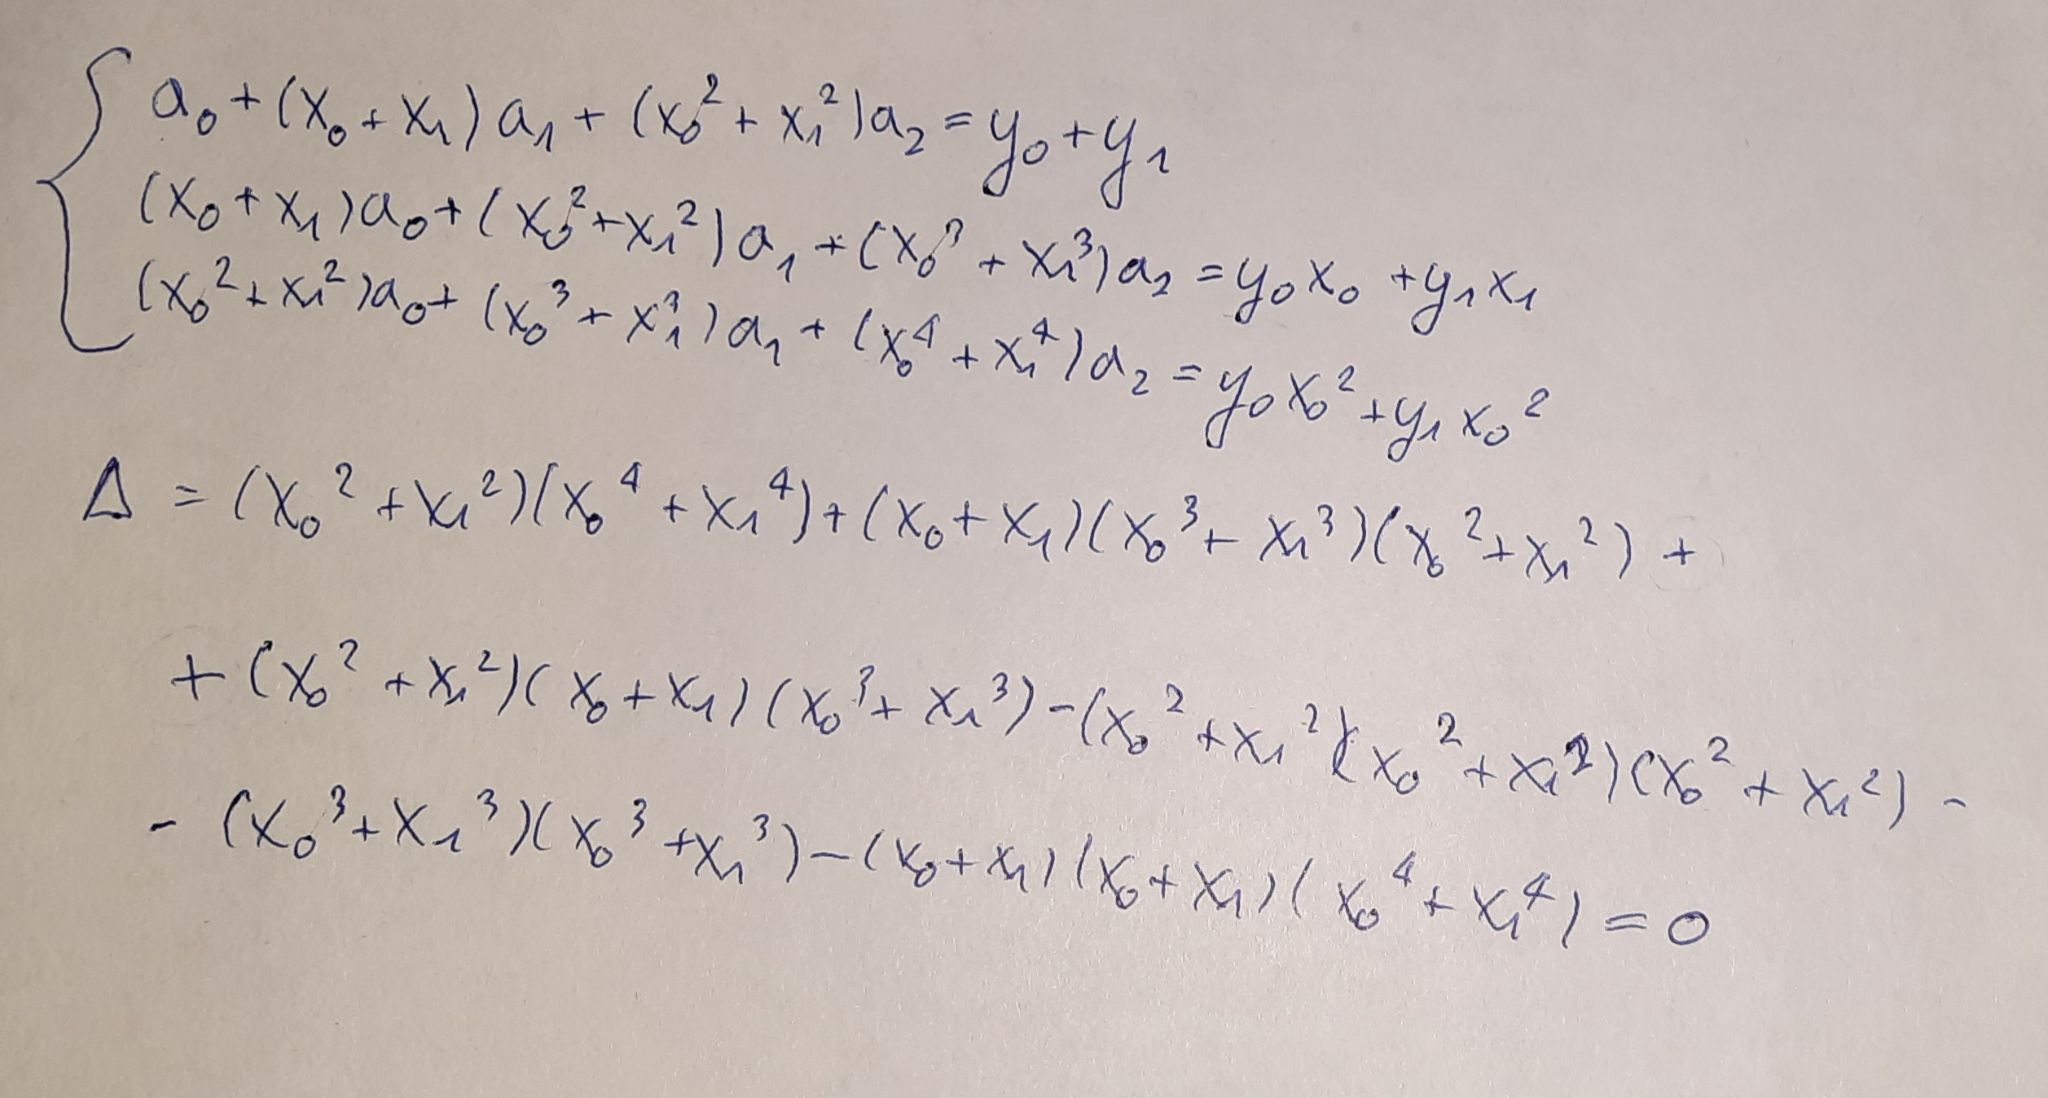 a₀ + (x₀ + x₁) a₁ + (x₀² + x₁²) a₂ = y₀ + y₁
(x₀ + x₁) a₀ + (x₀² + x₁²) a₁ + (x₀³ + x₁³) a₂ = y₀x₀ + y₁x₁
(x₀² + x₁²) a₀ + (x₀³ + x₁³) a₁ + (x₀⁴ + x₁⁴) a₂ = y₀x₀² + y₁x₀²
Δ = (x₀² + x₁²)(x₀⁴ + x₁⁴) + (x₀ + x₁)(x₀³ + x₁³)(x₀² + x₁²) +
+ (x₀² + x₁²)(x₀ + x₁)(x₀³ + x₁³) - (x₀² + x₁²)(x₀² + x₁²)(x₀² + x₁²) -
- (x₀³ + x₁³)(x₀³ + x₁³) - (x₀ + x₁)(x₀ + x₁)(x₀⁴ + x₁⁴) = 0